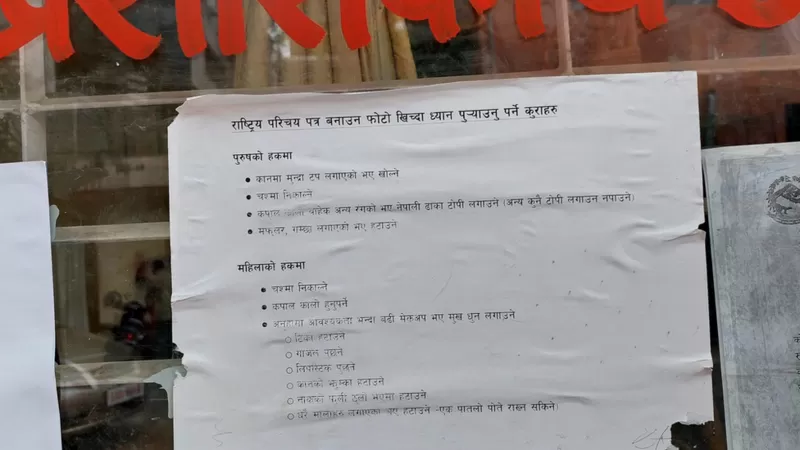 राष्ट्रिय परिचय पत्र बनाउन फोटो खिच्दा ध्यान पुऱ्याउनु पर्ने कुराहरु
पुरुषको हकमा
कानमा मुन्द्रा टप लगाएको भए खोल्ने
चश्मा निकाल्ने
कपाल कालो बाहेक अन्य रंगको भए नेपाली ढाका टोपी लगाउने (अन्य कुनै टोपी लगाउन नपाउने)
मफलर, गम्छा लगाएको भए हटाउने
महिलाको हकमा
चश्मा निकाल्ने
कपाल कालो हुनुपर्ने
अनुहारमा आवश्यकता भन्दा बढी मेकअप भए मुख धुन लगाउने
टिका हटाउने
गाजल पुछ्ने
लिपस्टिक पुछ्ने
कानको झुम्का हटाउने
नाकको फुली ठुलो भएमा हटाउने
धेरै मालाहरु लगाएको भए हटाउने -एक पातलो पोते राख्न सकिने)